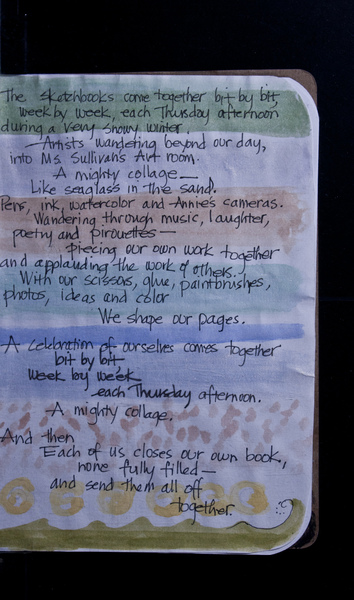 The sketchbooks come together bit by bit,
week by week, each Thursday afternoon
during a very snowy winter.
Artists wandering beyond our day,
into Ms. Sullivan's Art room.
A mighty collage—
Like seaglass in the sand.
Pens, ink, watercolor and Annie's cameras.
Wandering through music, laughter,
poetry and pirouettes—
piecing our own work together
and applauding the work of others.
With our scissors, glue, paintbrushes,
photos, ideas and color
We shape our pages.
A celebration of ourselves comes together
bit by bit
week by week
each Thursday afternoon.
A mighty collage.
And then
Each of us closes our own book,
none fully filled—
and send them all off
together.